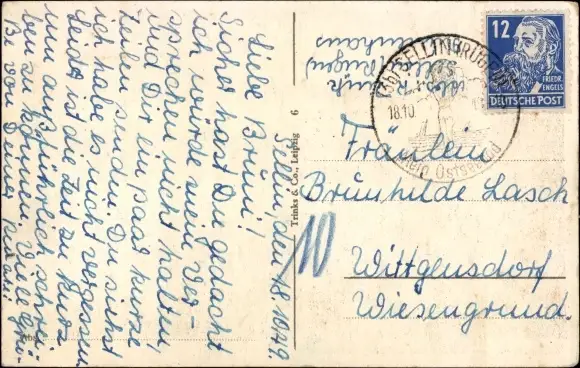 Sellin, den 18.10.49.
Liebe Brüni!
Sicher hast Du gedacht
ich würde mein Ver-
sprechen nicht halten,
und Dir ein paar kurze
Zeilen senden. Du siehst
ich habe es nicht vergessen.
Leider ist die Zeit zu kurz
um ausführlich schrei-
ben zu können. Viele Grü-
ße von Deiner
Trinks & Co., Leipzig 6
Abs. R.
Sellin Rügen
12
FRIEDR.
ENGELS
DEUTSCHE POST
(3b) SELLIN (RÜGEN)
18.10.
Ostseebad
Fräulein
Brünhilde Lasch
10
Wittgensdorf
Wiesengrund.